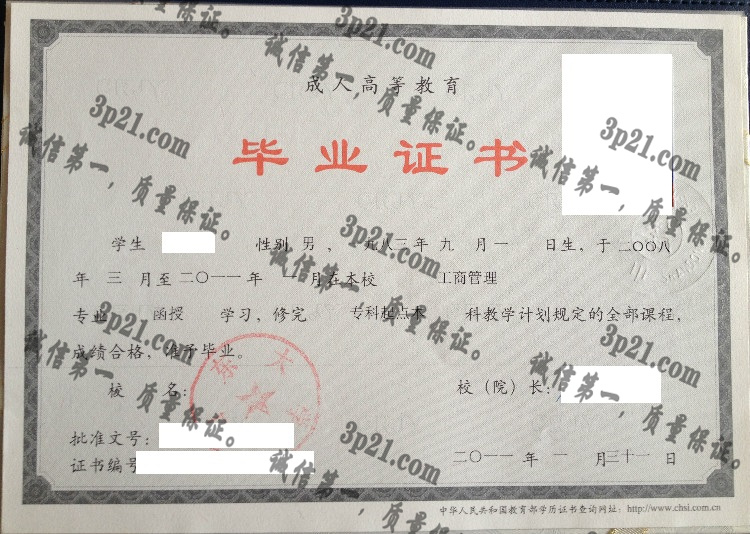 成人高等教育
毕业证书
学生 性别 男, 一九八三年 九 月 一 日生,于 二〇〇八
年 三 月至 二〇一一 年 月在本校 工商管理
专业 函授 学习,修完 专科起点本 科教学计划规定的全部课程,
成绩合格,准予毕业。
校 名: 校(院)长:
批准文号:
证书编号
二〇一一 年 一 月三十一日
中华人民共和国教育部学历证书查询网址:http://www.chsi.com.cn
3p21.com
诚信第一,质量保证。
3p21.com
诚信第一,质量保证。
3p21.com
诚信第一,质量保证。
3p21.com
诚信第一,质量保证。
3p21.com
诚信第一,质量保证。
3p21.com
诚信第一,质量保证。
3p21.com
诚信第一,质量保证。